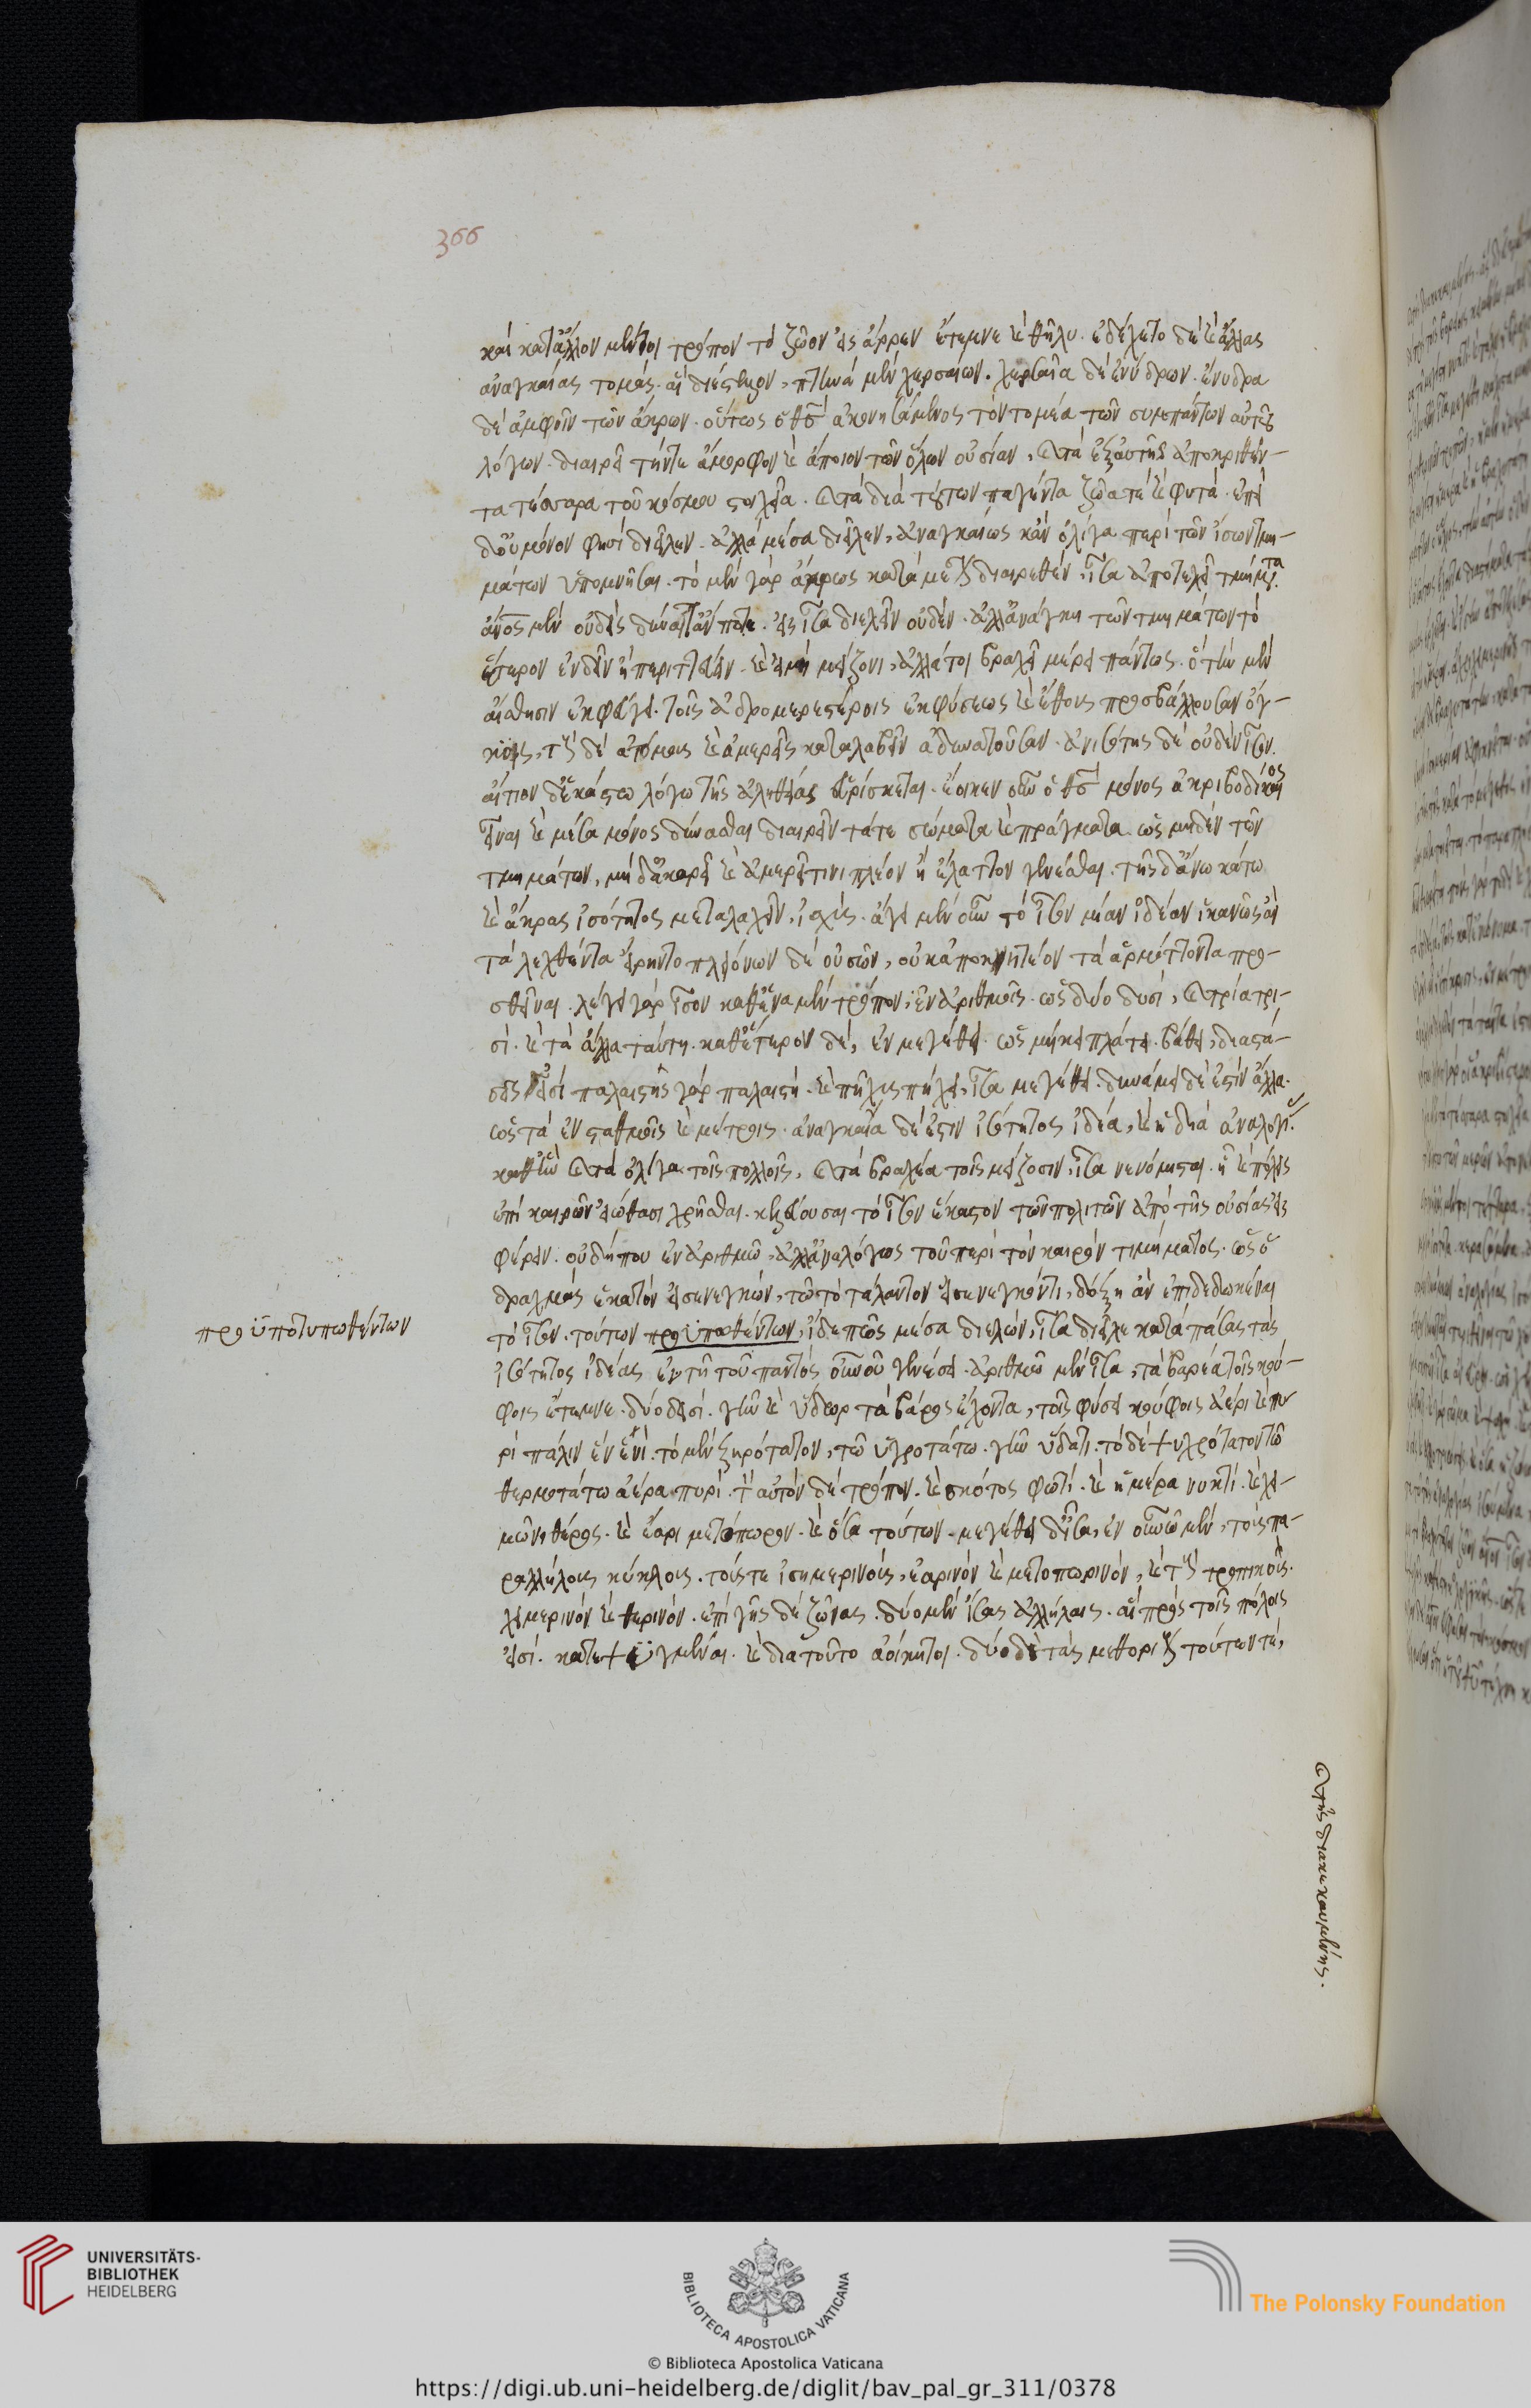 καὶ κατ' ἄλλον μέντοι τρόπον τὸ ζῶον εἰς ἄρρεν ἔτεμνε καὶ θῆλυ. ἐδέχετο δὲ καὶ ἄλλας
ἀναγκαίας τομάς. αἳ διέστελλον, πτηνὰ μὲν χερσαίων. χερσαῖα δὲ ἐνύδρων. ἔνυδρα
δὲ ἀμφοῖν τῶν ἄκρων. οὕτως ὁ θς ἀκονησάμενος τὸν τομέα τῶν συμπάντων αὐτοῦ
λόγων. διαιρεῖ τήν τε ἄμορφον καὶ ἄποιον τῶν ὅλων οὐσίαν, καὶ τὰ ἐξ αὐτῆς ἀποκριθέν-
τα τέσσαρα τοῦ κόσμου στοιχεῖα. καὶ τὰ διὰ τούτων παγέντα ζῶα τὲ καὶ φυτά. ἐπεὶ
δ' οὐ μόνον φησὶ διεῖλεν. ἀλλὰ μέσα διεῖλεν, ἀναγκαίως κἂν ὀλίγα περὶ τῶν ἴσων τμη-
μάτων ὑπομνῆσαι. τὸ μὲν γὰρ ἄκρως κατὰ μέσον διαιρεθὲν, ἴσα ἀποτελεῖ τμήματα.
ἄνος μὲν οὐδεὶς δύναιτ' ἄν ποτε. εἰς ἴσα διελεῖν οὐδέν. ἀλλ' ἀνάγκη τῶν τμημάτων τὸ
ἕτερον ἐνδεῖν ἢ περιττεύειν. καὶ εἰ μὴ μείζονι, ἀλλά τοι βραχεῖ μέρει πάντως. ὃ τὴν μὲν
αἴσθησιν ἐκφεύγει. τοῖς ἁδρομερεστέροις ἐκ φύσεως καὶ ἔθους προσβάλλουσαν ὄγ-
κοις, τοὺς δὲ ἀτόμους καὶ ἀμερεῖς καταλαβεῖν ἀδυνατοῦσαν. ἀνισότης δὲ οὐδὲν ἴσον.
αἴτιον δεκάστω λόγω τῆς ἀληθείας εὑρίσκεται. ἔοικεν οὖν ὁ θς μόνος ἀκριβοδίκαιος
εἶναι καὶ μέσα μόνος δύνασθαι διαιρεῖν τά τε σώματα καὶ πράγματα. ὡς μηδὲν τῶν
τμημάτων, μηδ' ἀκαρεῖ καὶ ἀμερεῖ τινι πλέον ἢ ἔλαττον γενέσθαι. τῆς δ' ἄνω κάτω
καὶ ἄκρας ἰσότητος μεταλαχεῖν, ἰσχύσ. εἰ μὲν οὖν τὸ ἴσον μίαν ἰδέαν, ἱκανῶς ἂν
τὰ λεχθέντα εἴρητο πλειόνων δὲ οὐσῶν, οὐκ ἀποκνητέον τὰ ἁρμόττοντα προ-
σθεῖναι. λέγει γὰρ ἴσον καθ' ἕνα μὲν τρόπον, ἐν ἀριθμοῖς. ὡς δύο δυσὶ, καὶ τρία τρι-
σί. καὶ τὰ ἄλλα ταύτη. καθ' ἕτερον δὲ, ἐν μεγέθει. ὡς μήκει πλάτει. βάθει, διαστά-
σεις εἰσί παλαιστῆς γὰρ παλαιστὴ. καὶ πῆχις πήχει, ἴσα μεγέθει. δυνάμει δὲ ἐστὶν ἄλλα.
ὡς τὰ ἐν σταθμοῖς καὶ μέτροις. ἀναγκαῖα δὲ ἐστιν ἰσότητος ἰδέα, καὶ ἡ διὰ ἀναλογίας.
καθ' ἣν καὶ τὰ ὀλίγα τοῖς πολλοῖς, καὶ τὰ βραχέα τοῖς μείζοσιν, ἴσα νενόμισται. ἧ καὶ πόλεις
ἐπὶ καιρῶν εἰώθασι χρῆσθαι. κελεύουσαι τὸ ἴσον ἕκαστον τῶν πολιτῶν ἀπὸ τῆς οὐσίας εἰσ
φέρειν. οὐ δήπου ἐν ἀριθμῶ, ἀλλ' ἀναλόγως τοῦ περὶ τὸν καιρὸν τιμήματος. ὡς ὁ
δραχμὰς ἑκατὸν εἰσενεγκὼν, τῶ τὸ τάλαντον εἰσενεγκόντι, δόξῃ ἂν ἐπιδεδωκέναι
τὸ ἴσον. τούτων προϋποθέντων, ἴδε πῶς μέσα διελών, ἴσα διεῖλε κατὰ πάσας τὰς
προϋποτυπωθέντων
ἰσότητος ἰδέας ἐν τῆ τοῦ παντὸς οὐνοῦ γενέσει. ἀριθμῶ μὲν ἴσα, τὰ βαρέα τοῖς κού-
φοις ἔτεμνε. δύο δυσί. γῆν καὶ ὕδωρ τὰ βάρος ἔχοντα, τοῖς φύσει κούφοις ἀέρι καὶ πυ-
ρὶ πάλιν ἓν ἑνί. τὸ μὲν ξηρότατον, τῶ ὑγροτάτω. γῆν ὕδατι. τὸ δὲ ψυχρότατον τῶ
θερμοτάτω ἀέρα πυρί. τὸν αὐτὸν δὲ τρόπον. καὶ σκότος φωτί. καὶ ἡμέρα νυκτί. καὶ χει-
μῶνι θέρος. καὶ ἔαρι μετόπωρον. καὶ ὅσα τούτων. μεγέθει δ' ἴσα, ἐν οὐνῶ μὲν, τοὺς πα-
ραλλήλους κύκλους. τούς τε ἰσημερινούς, ἐαρινὸν καὶ μετοπωρινόν, καὶ τοὺς τροπικούς.
χειμερινὸν καὶ θερινόν. ἐπὶ γῆς δὲ ζώνας. δύο μὲν ἴσας ἀλλήλαις. αἳ πρὸς τοῖς πόλοις
εἰσί. κατεψυγμέναι. καὶ διὰ τοῦτο ἀοίκητοι. δύο δὲ τὰς μεθορίους τούτων τὲ,
καὶ τῆς διακεκαυμένης.
366
UNIVERSITÄTS-
BIBLIOTHEK
HEIDELBERG
BIBLIOTECA APOSTOLICA VATICANA
The Polonsky Foundation
© Biblioteca Apostolica Vaticana
https://digi.ub.uni-heidelberg.de/diglit/bav_pal_gr_311/0378